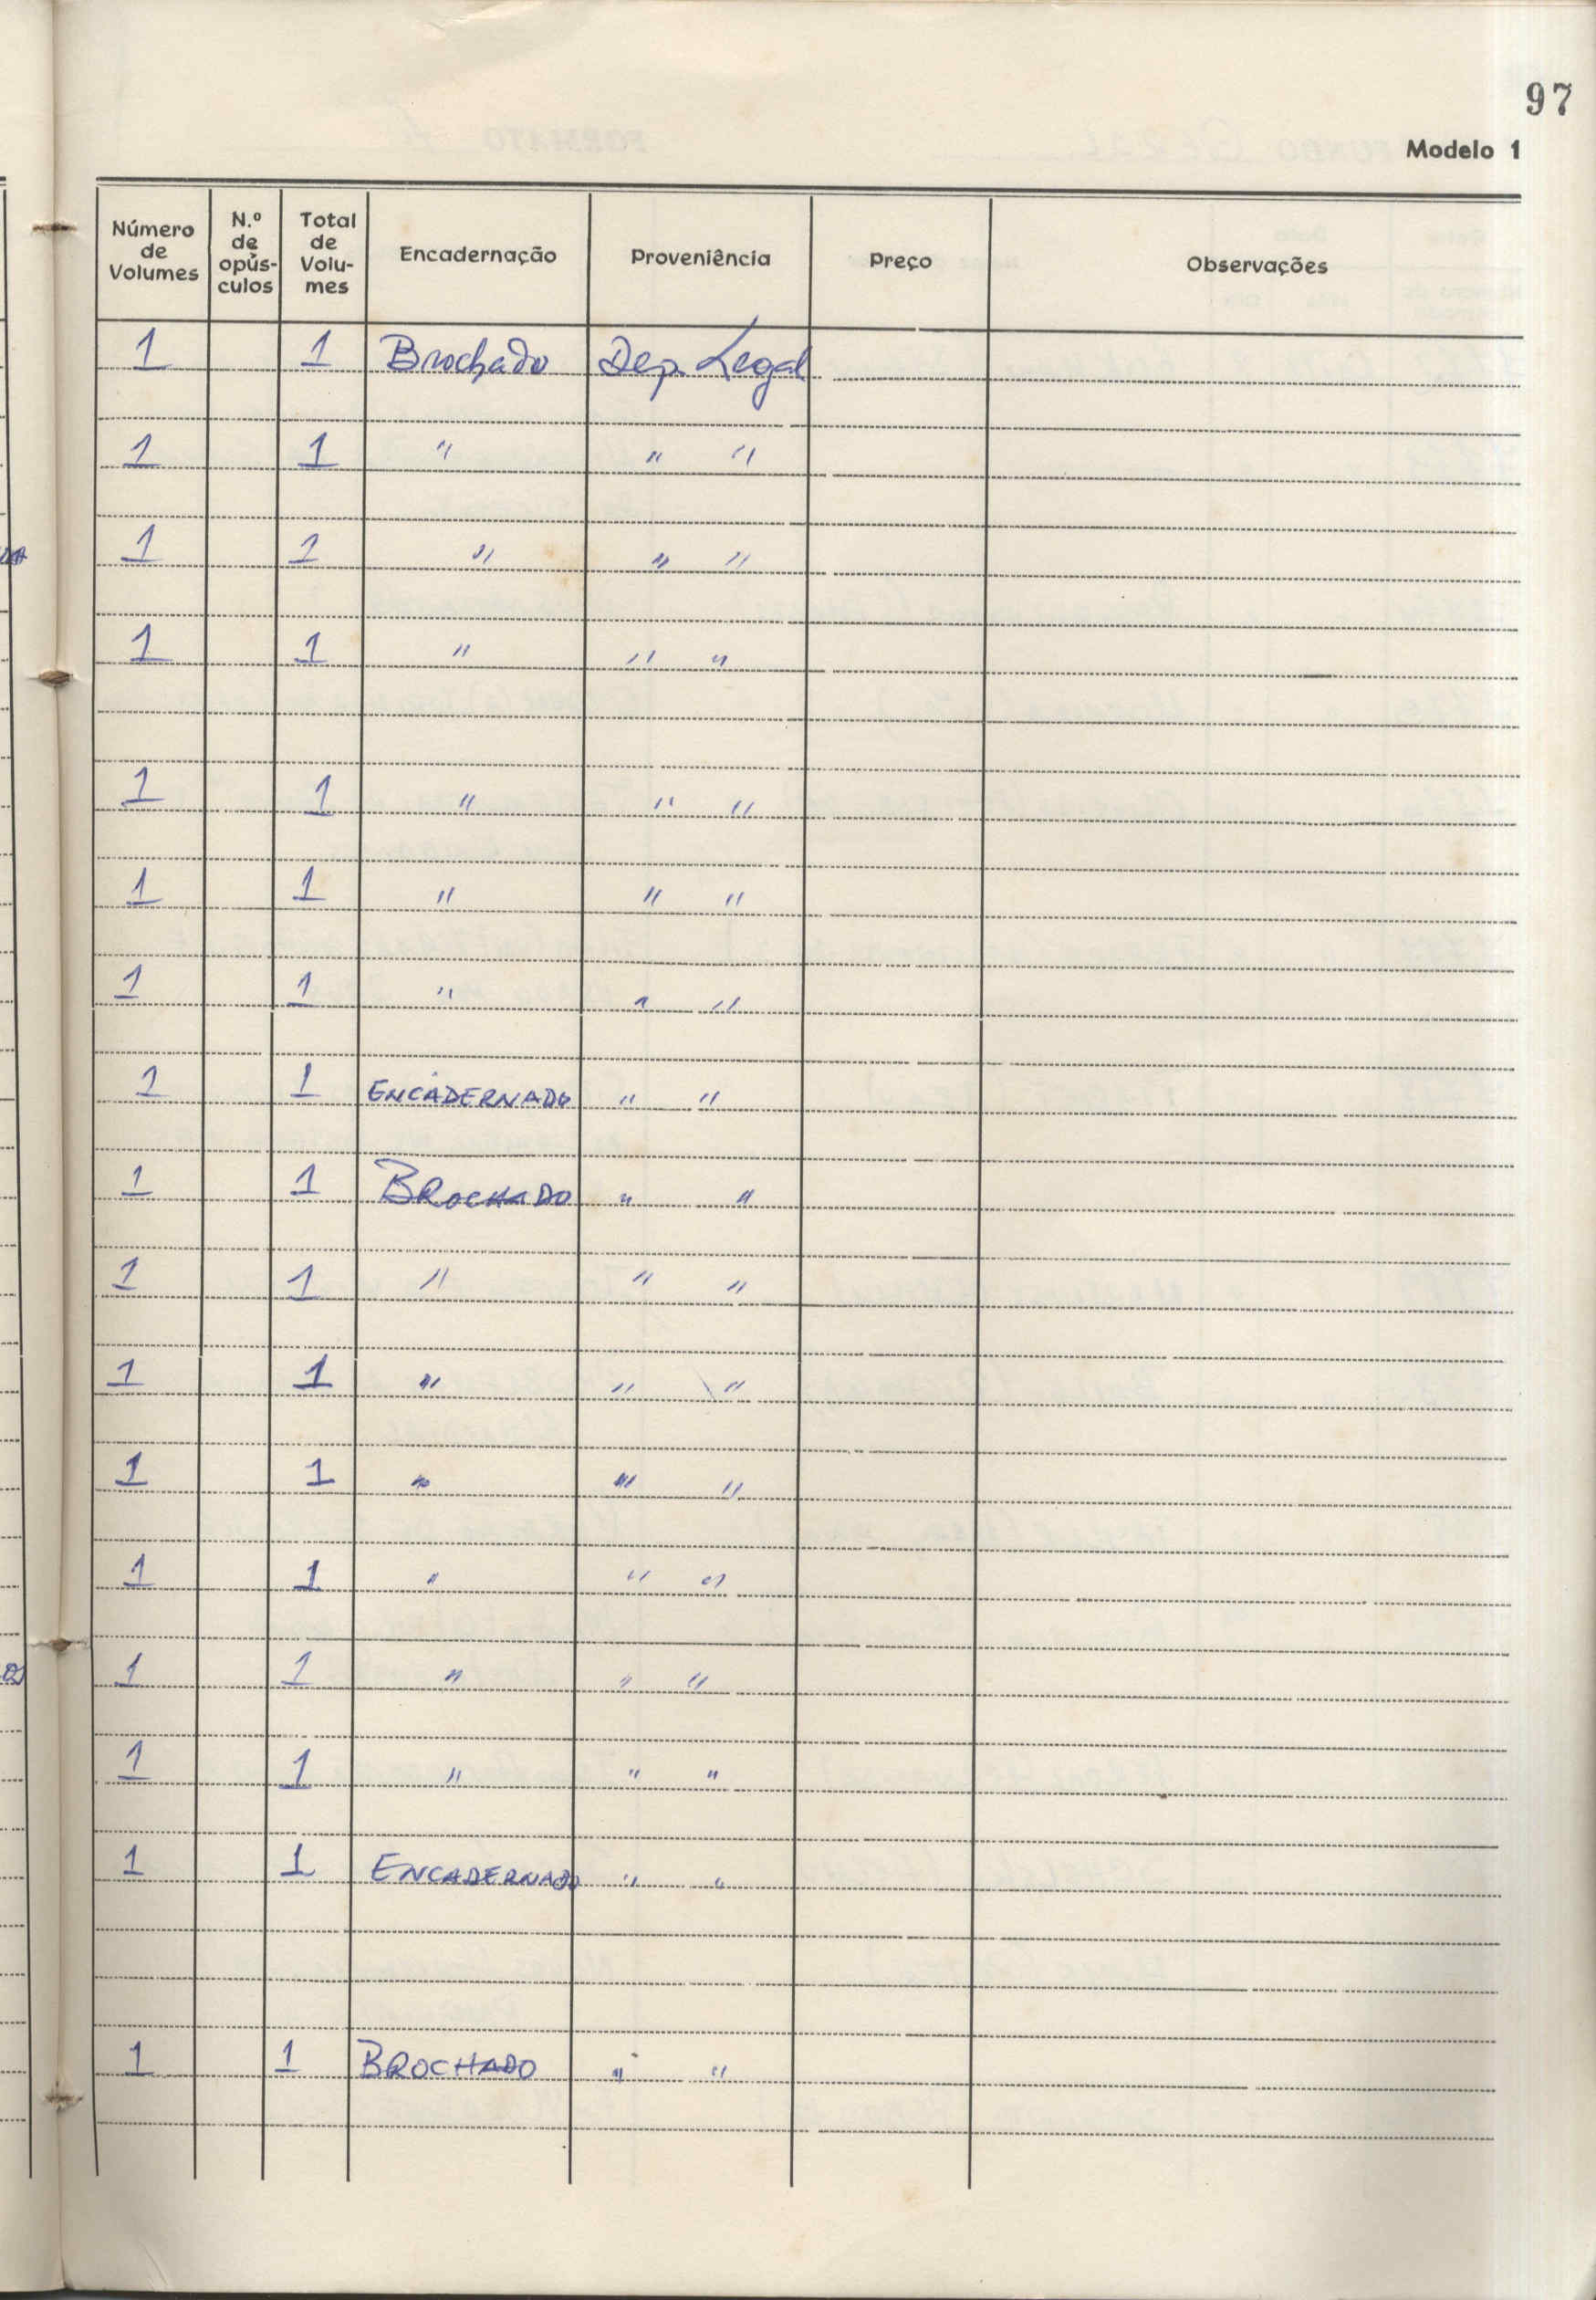 97
Modelo 1
Número de Volumes N.º de opús-culos Total de Volu-mes Encadernação Proveniência Preço Observações
1 1 Brochado Dep. Legal
1 1 " " "
1 1 " " "
1 1 " " "
1 1 " " "
1 1 " " "
1 1 " " "
1 1 ENCADERNADO " "
1 1 BROCHADO " "
1 1 " " "
1 1 " " "
1 1 " " "
1 1 " " "
1 1 " " "
1 1 " " "
1 1 ENCADERNADO " "
1 1 BROCHADO " "